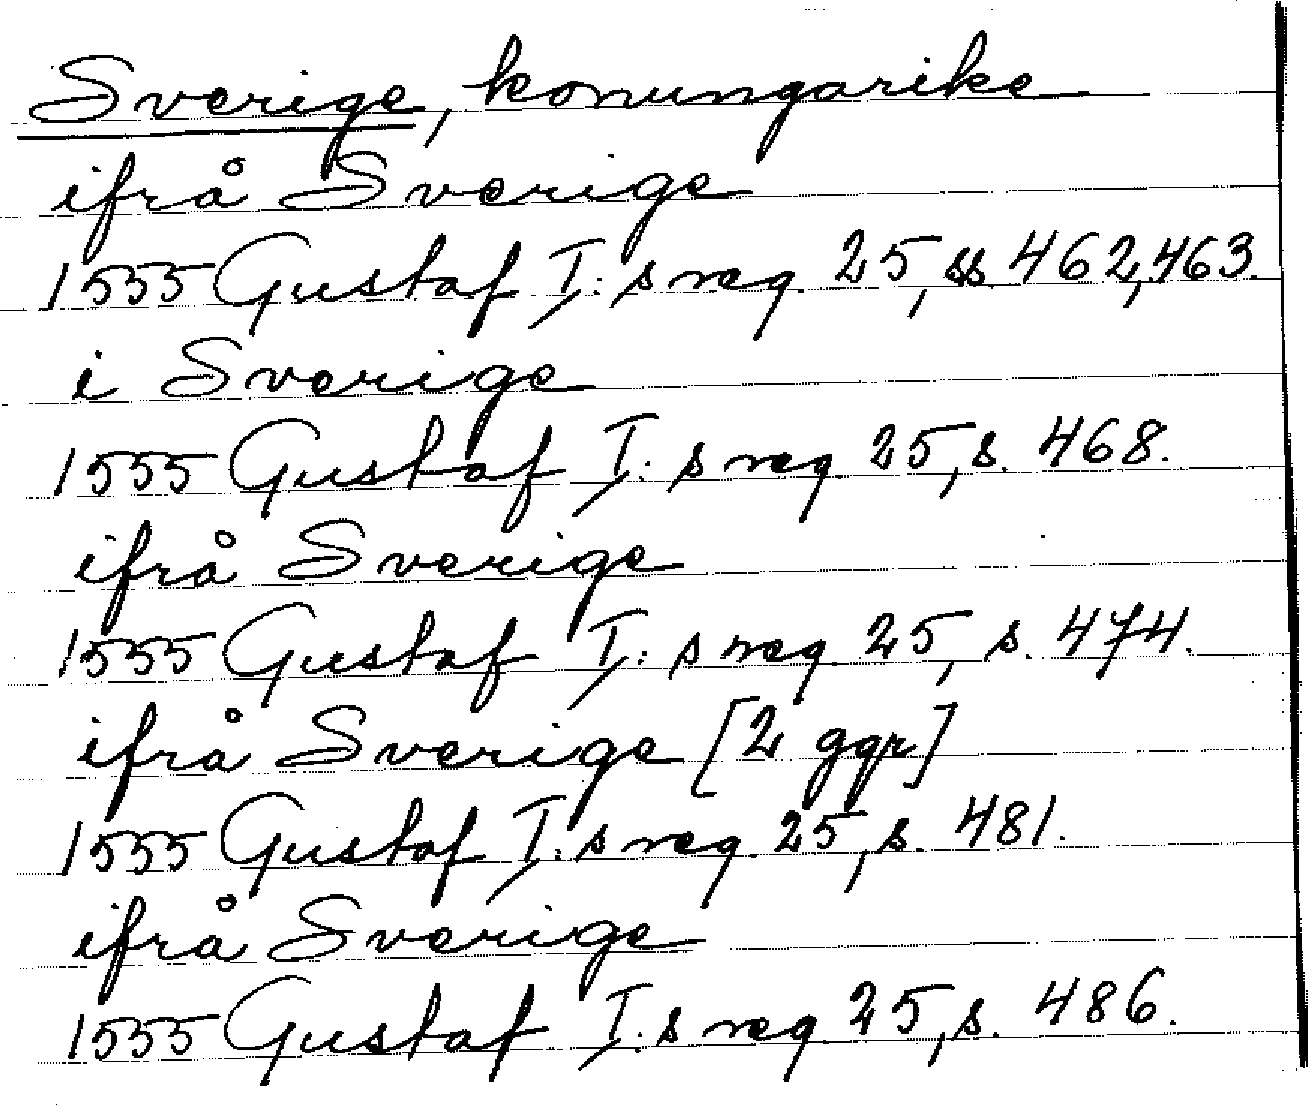 Sverige, konungarike
ifrå Sverige
1555 Gustaf I:s reg. 25, ss 462, 463.
i Sverige
1555 Gustaf I:s reg. 25, s. 468.
ifrå Sverige
1555 Gustaf I:s reg. 25, s. 474.
ifrå Sverige [2 ggr]
1555 Gustaf I:s reg. 25, s. 481.
ifrå Sverige
1555 Gustaf I:s reg 25, s. 486.